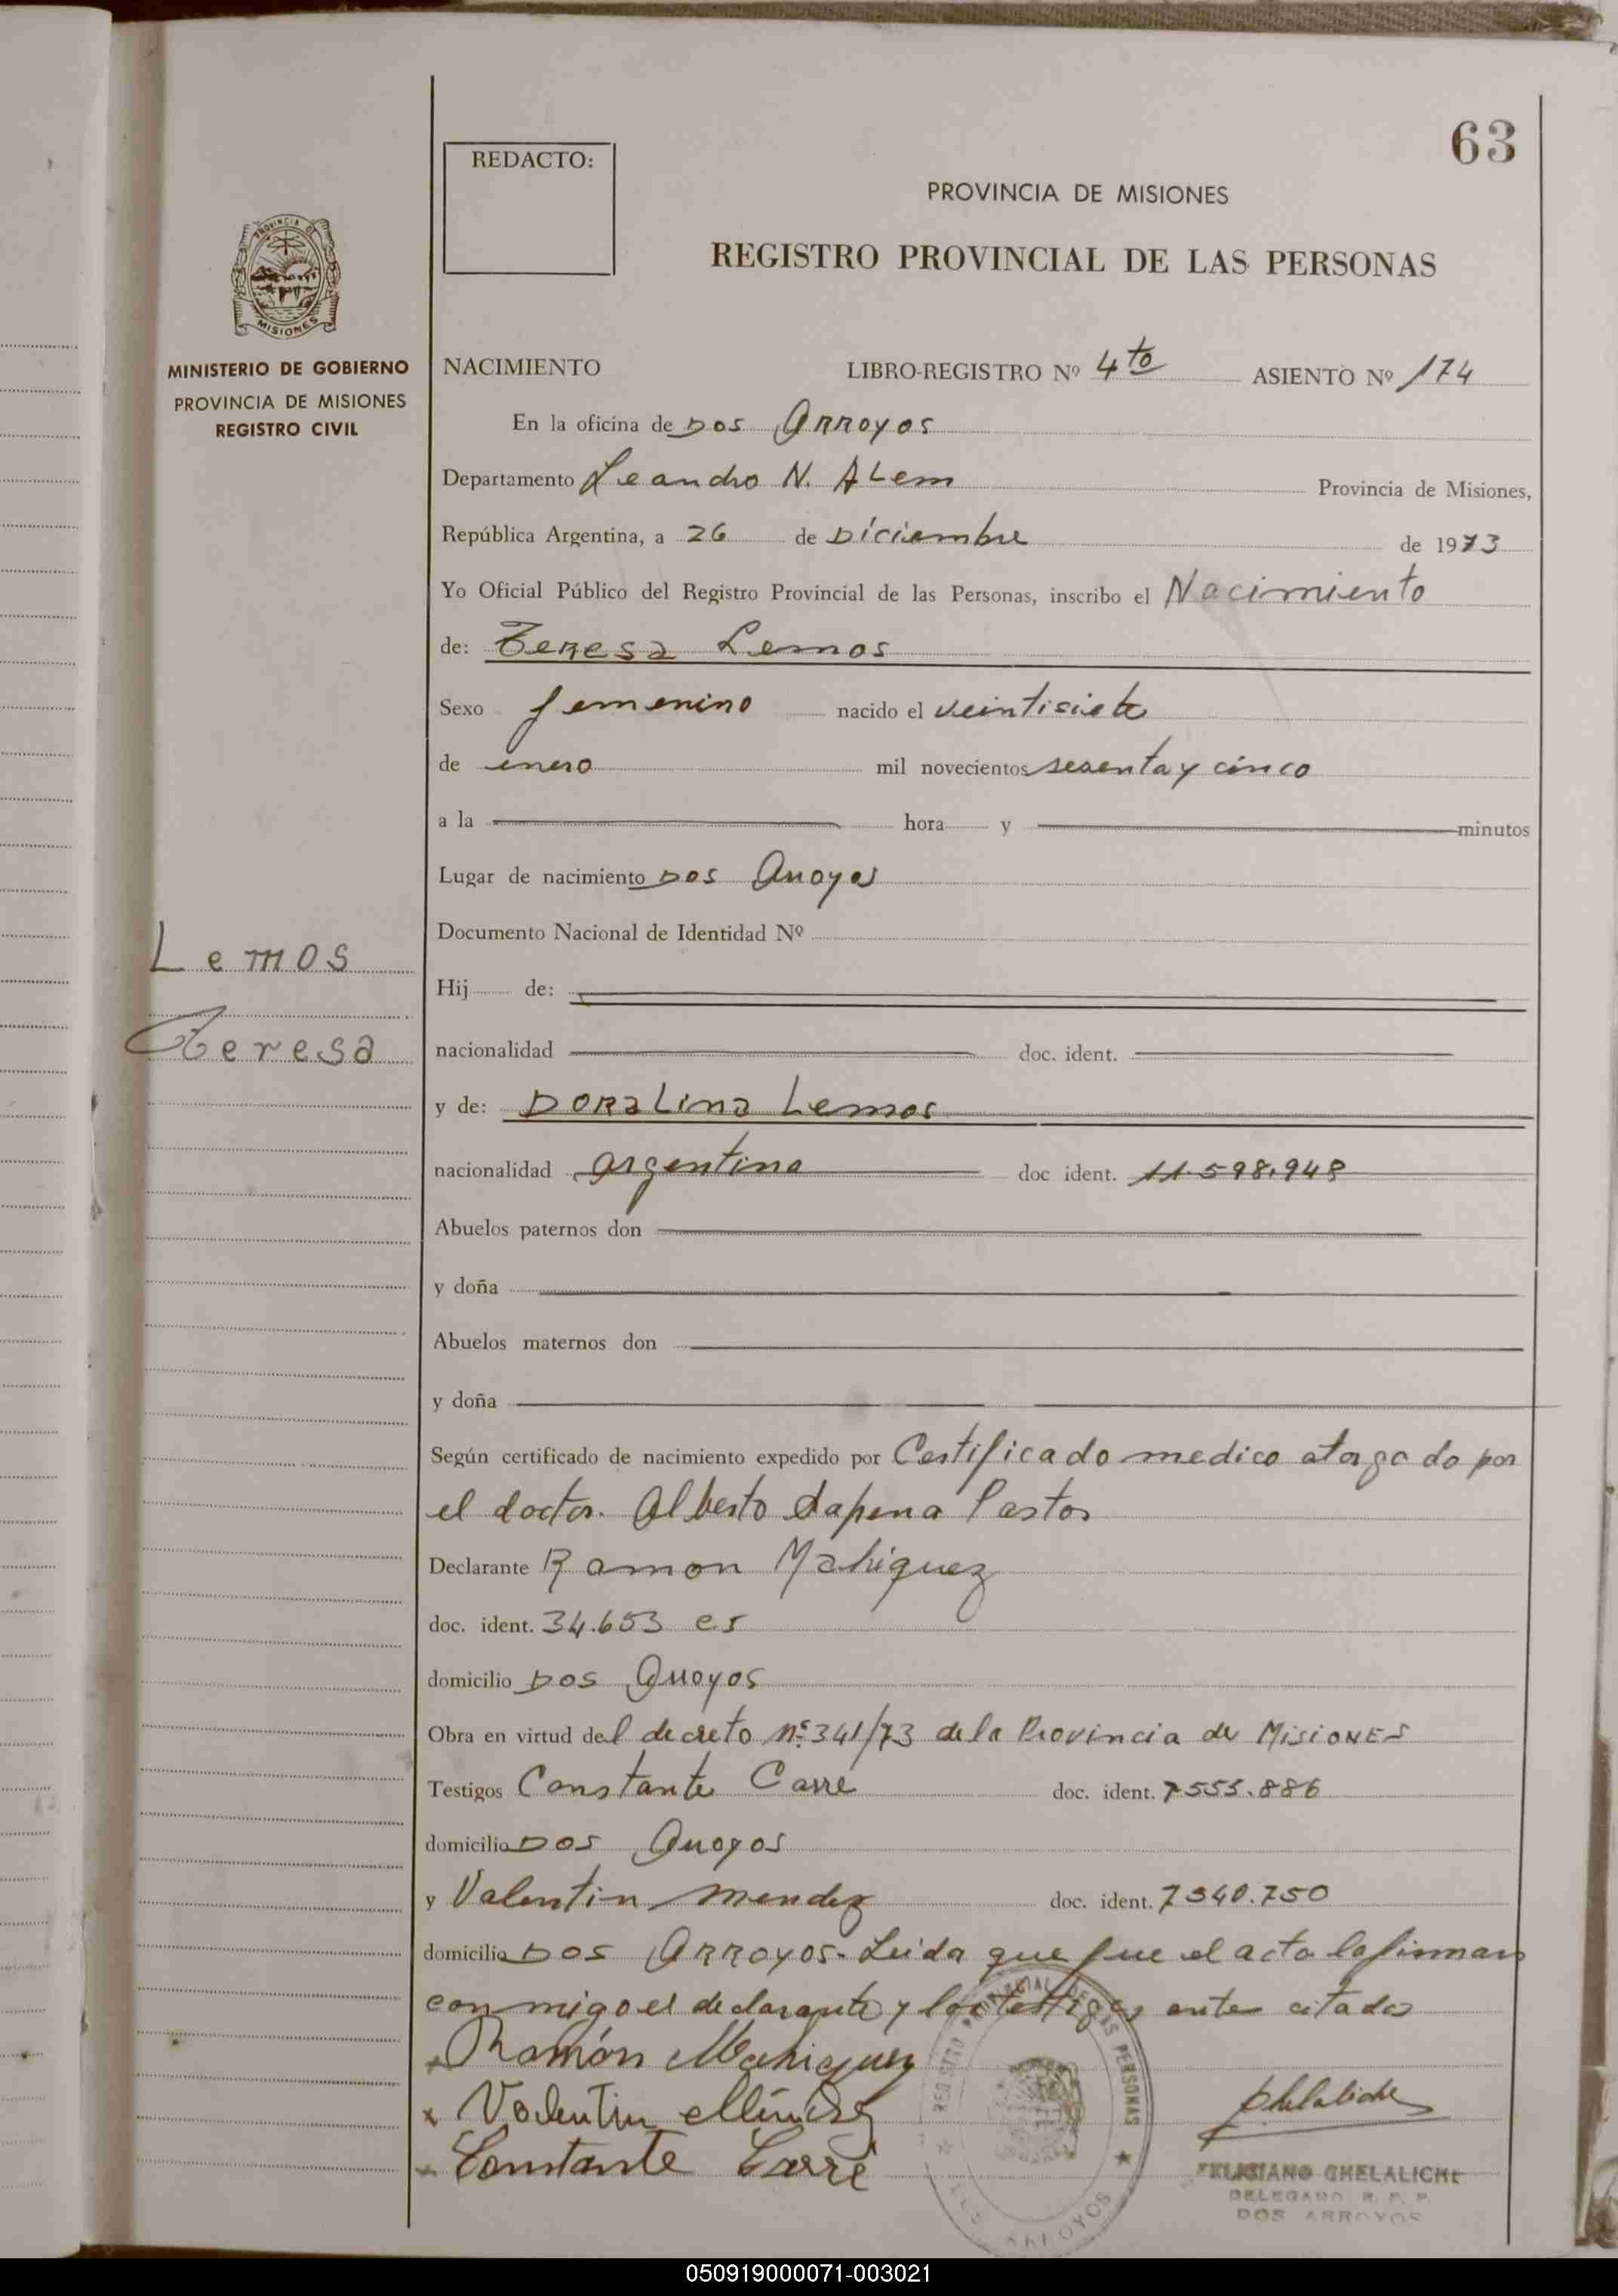 63
REDACTO:
PROVINCIA DE MISIONES
REGISTRO PROVINCIAL DE LAS PERSONAS
PROVINCIA DE
MISIONES
MINISTERIO DE GOBIERNO
PROVINCIA DE MISIONES
REGISTRO CIVIL
NACIMIENTO LIBRO-REGISTRO Nº 4to ASIENTO Nº 174
En la oficina de Dos Arroyos
Departamento Leandro N. Alem Provincia de Misiones,
República Argentina, a 26 de Diciembre de 1973
Yo Oficial Público del Registro Provincial de las Personas, inscribo el Nacimiento
de: Teresa Lemos
Sexo femenino nacido el veintisiete
de enero mil novecientos sesenta y cinco
a la hora y minutos
Lugar de nacimiento Dos Arroyos
Documento Nacional de Identidad Nº
Lemos
Teresa
Hij de:
nacionalidad doc. ident.
y de: Doralina Lemos
nacionalidad argentina doc ident. 11.598.948
Abuelos paternos don
y doña
Abuelos maternos don
y doña
Según certificado de nacimiento expedido por Certificado medico otorgado por
el doctor. Alberto Sapena Pastor
Declarante Ramon Mahiquez
doc. ident. 34.653 es
domicilio Dos Arroyos
Obra en virtud del decreto nº 341/73 de la Provincia de Misiones
Testigos Constante Carré doc. ident. 7555.886
domicilio Dos Arroyos
y Valentin Mendez doc. ident. 7340.750
domicilio Dos Arroyos- Leida que fue el acta la firman
conmigo el declarante y los testigos antes citados
Ramón Mahiquez
Valentin Méndez
Constante Carré
REGISTRO PROVINCIAL DE LAS PERSONAS
DOS ARROYOS
Chelaliche
FELISIANO CHELALICHE
DELEGADO R. P. P.
DOS ARROYOS
050919000071-003021